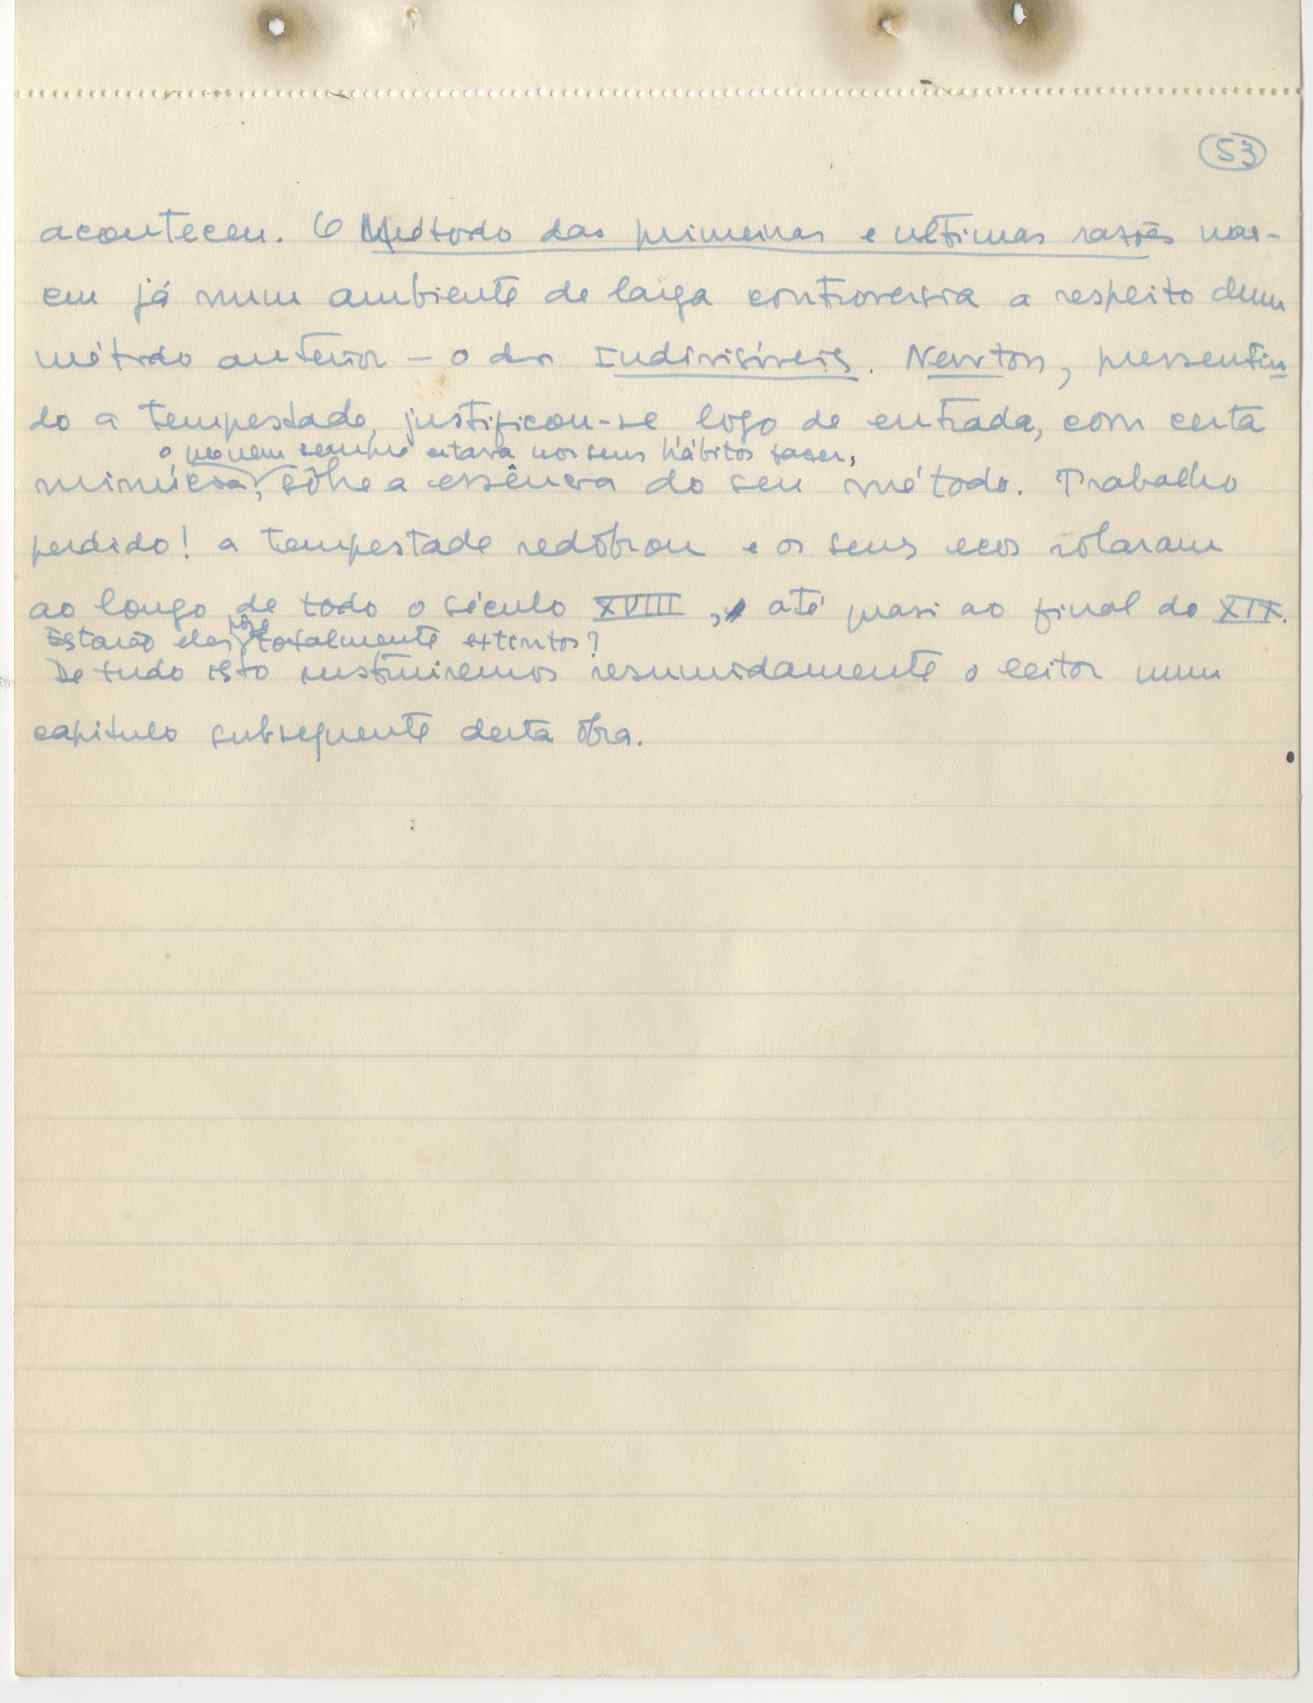 53
aconteceu. O Método das primeiras e ultimas razões nas-
ceu já num ambiente de larga controversia a respeito dum
método anterior — o dos Indivisíveis. Newton, pressentin
do a tempestade, justificou-se logo de entrada, com certa
o que nem sempre estava nos seus hábitos fazer,
minúcia, sôbre a essência do seu método. Trabalho
perdido! a tempestade redobrou e os seus ecos rolaram
ao longo de todo o século XVIII, até quasi ao final do XIX.
Estarão eles hoje totalmente extintos?
De tudo isto instruiremos resumidamente o leitor num
capitulo subsequente desta obra.